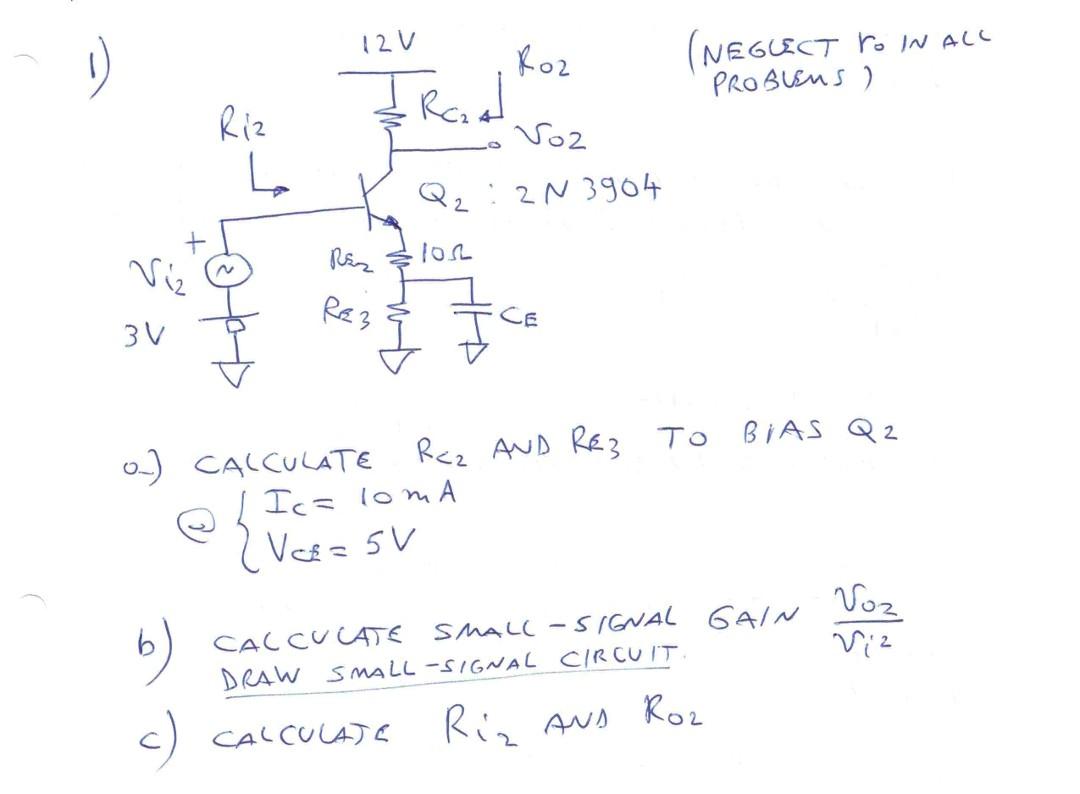 1)
12V
Ro2
(NEGLECT ro IN ALL
PROBLEMS)
Ri2
RC2
Vo2
Q2 : 2N3904
+
Vi2
RE2
10Ω
3V
RE3
CE
a) CALCULATE RC2 AND RE3 TO BIAS Q2
@ { IC = 10 mA
VCE = 5V
b) CALCULATE SMALL-SIGNAL GAIN Vo2/Vi2
DRAW SMALL-SIGNAL CIRCUIT.
c) CALCULATE Ri2 AND Ro2